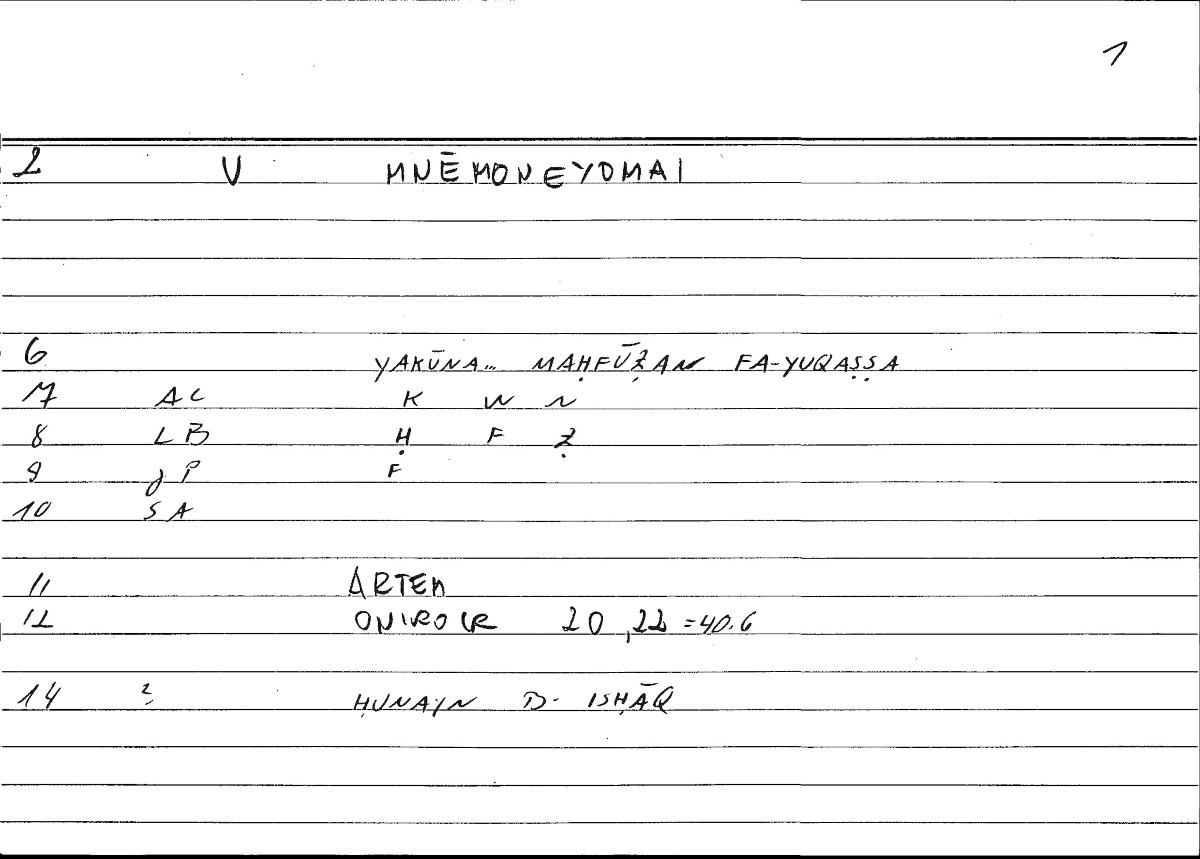 1
2 V MNĒMONEYOMAI
6 YAKŪNA... MAḤFŪẒAN FA-YUQAṢṢA
7 AC K W N
8 LB Ḥ F Ẓ
9 JP F
10 SA
11 ARTEM
12 ONIROCR 20,22 =40.6
14 2 ḤUNAYN B. ISḤĀQ